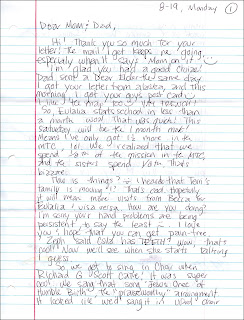 8-19, Monday ①
Dear Mom & Dad,
Hi! Thank you so much for your
letter! The mail I get keeps me going,
especially when it says "Mom" on it.
I'm glad you had a good cruise!
Dad sent a Dear Elder the same day
I got your letter from Alaska, and this
morning I got your guys post card
So, Eulalia starts school in less than
a month wow! That was quick! This
Saturday will be the 1 month mark!
Means I've only got 1½ more in the
MTC. We realized that we
spend of the mission in the MTC,
and the sisters spend that's
bizarre.
How is things? I heard that Tom's
family is moving! That's sad. Hopefully
it will mean more visits from Becca for
Eulalia & visa versa. How are you doing?
I'm sorry your hand problems are being
persistent to say the least. I hope
you & hope that you can get pain-free.
said has TEETH? Wow, that's
cool! Now we'll see when she starts
I guess.
So we got to sing in Choir when
Richard G. Scott came. It was super
cool! We sang that song "Jesus Once of
Humble Birth". The "praiseworthy" arrangement.
It looked like we'd sung it in Ward Choir